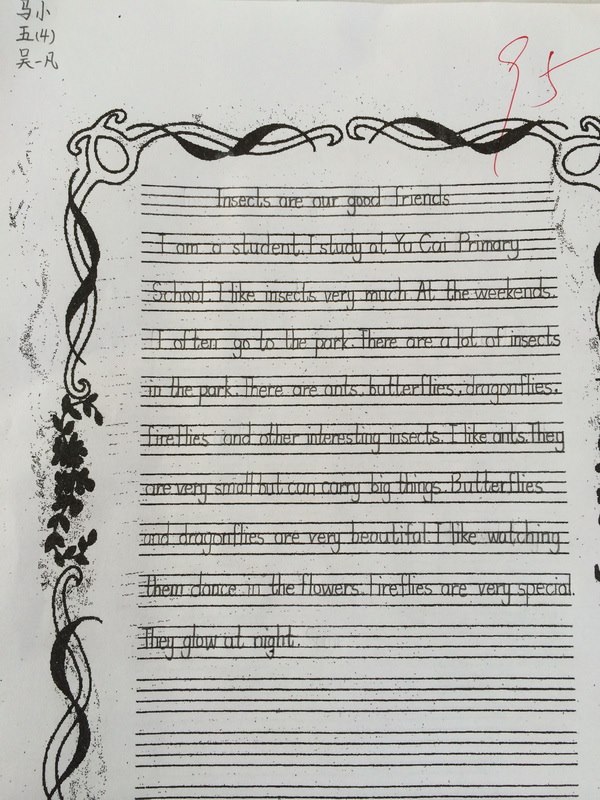 马小
五(4)
吴一凡
95
Insects are our good friends
I am a student. I study at Yu Cai Primary
School. I like insects very much. At the weekends.
I often go to the park. There are a lot of insects
in the park. There are ants, butterflies, dragonflies,
fireflies and other interesting insects. I like ants. They
are very small but can carry big things. Butterflies
and dragonflies are very beautiful. I like watching
them dance in the flowers. Fireflies are very special.
They glow at night.